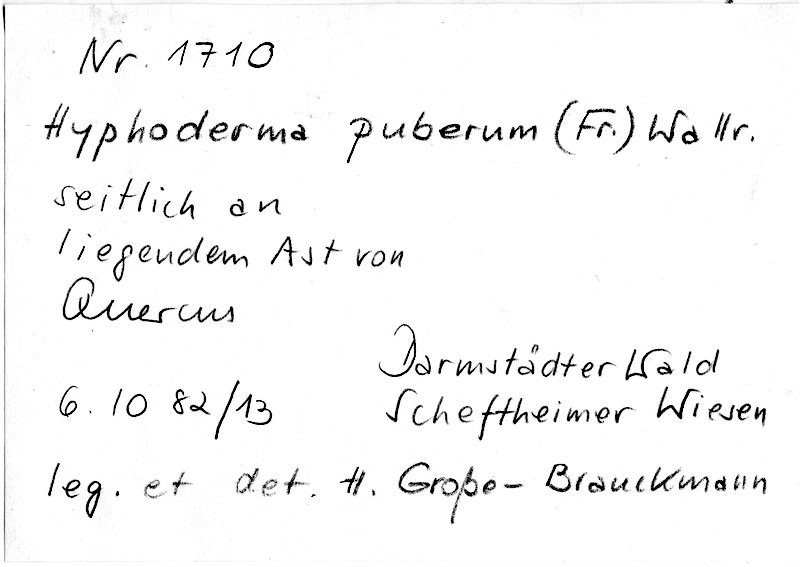 Nr. 1710
Hyphoderma puberum (Fr.) Wallr.
seitlich an
liegendem Ast von
Quercus
Darmstädter Wald
6. 10 82/13 Scheftheimer Wiesen
leg. et det. H. Große-Brauckmann